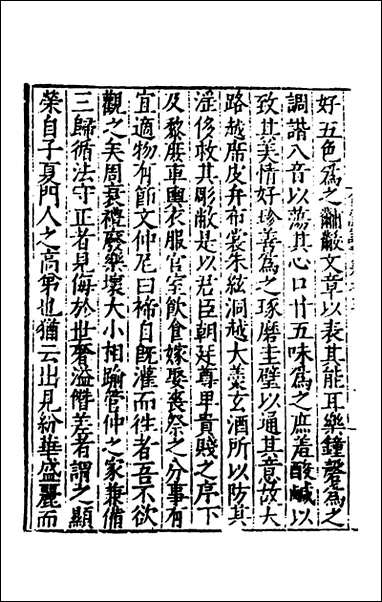 好五色爲之黼黻文章以表其能耳樂鐘磬爲之
調諧八音以蕩其心口甘五味爲之庶羞酸鹹以
致其美情好珍善爲之琢磨圭璧以通其意故大
路越席皮弁布裳朱絃洞越大羹玄酒所以防其
淫侈救其彫敝是以君臣朝廷尊卑貴賤之序下
及黎庶車輿衣服宮室飲食嫁娶喪祭之分事有
宜適物有節文仲尼曰禘自旣灌而往者吾不欲
觀之矣周衰禮廢樂壞大小相踰管仲之家兼備
三歸循法守正者見侮於世奢溢僭差者謂之顯
榮自子夏門人之高弟也猶云出見紛華盛麗而